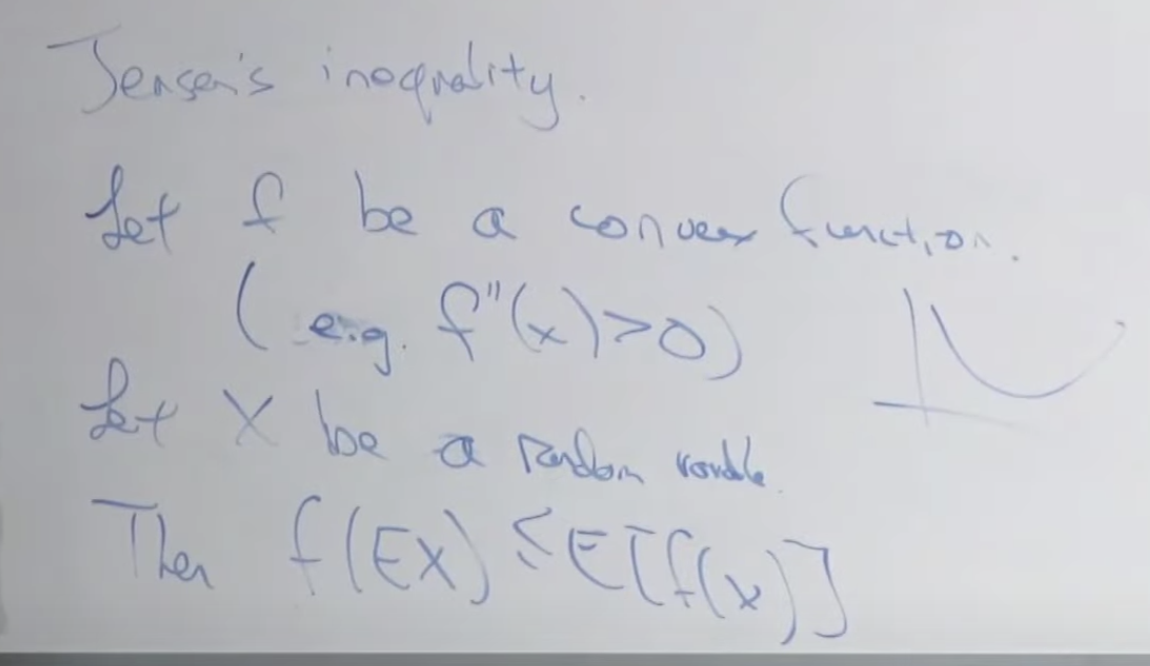 Jensen's inequality.
Let f be a convex function.
(e.g. f''(x)>0)
Let X be a random variable.
Then f(EX) ≤ E[f(x)]